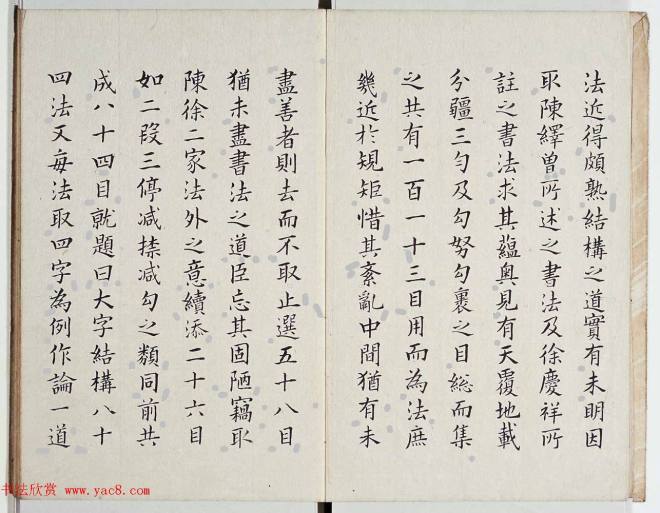 法近得頗熟結構之道實有未明因
取陳繹曽所述之書法及徐慶祥所
註之書法求其蘊奧見有天覆地載
分疆三勻及勾努勾裹之目総而集
之共有一百一十三目用而為法庶
幾近於規矩惜其紊亂中間猶有未
盡善者則去而不取止選五十八目
猶未盡書法之道臣忘其固陋竊取
陳徐二家法外之意續添二十六目
如二段三停减捺减勾之類同前共
成八十四目就題曰大字結構八十
四法又每法取四字為例作論一道
书法欣赏 www.yac8.com